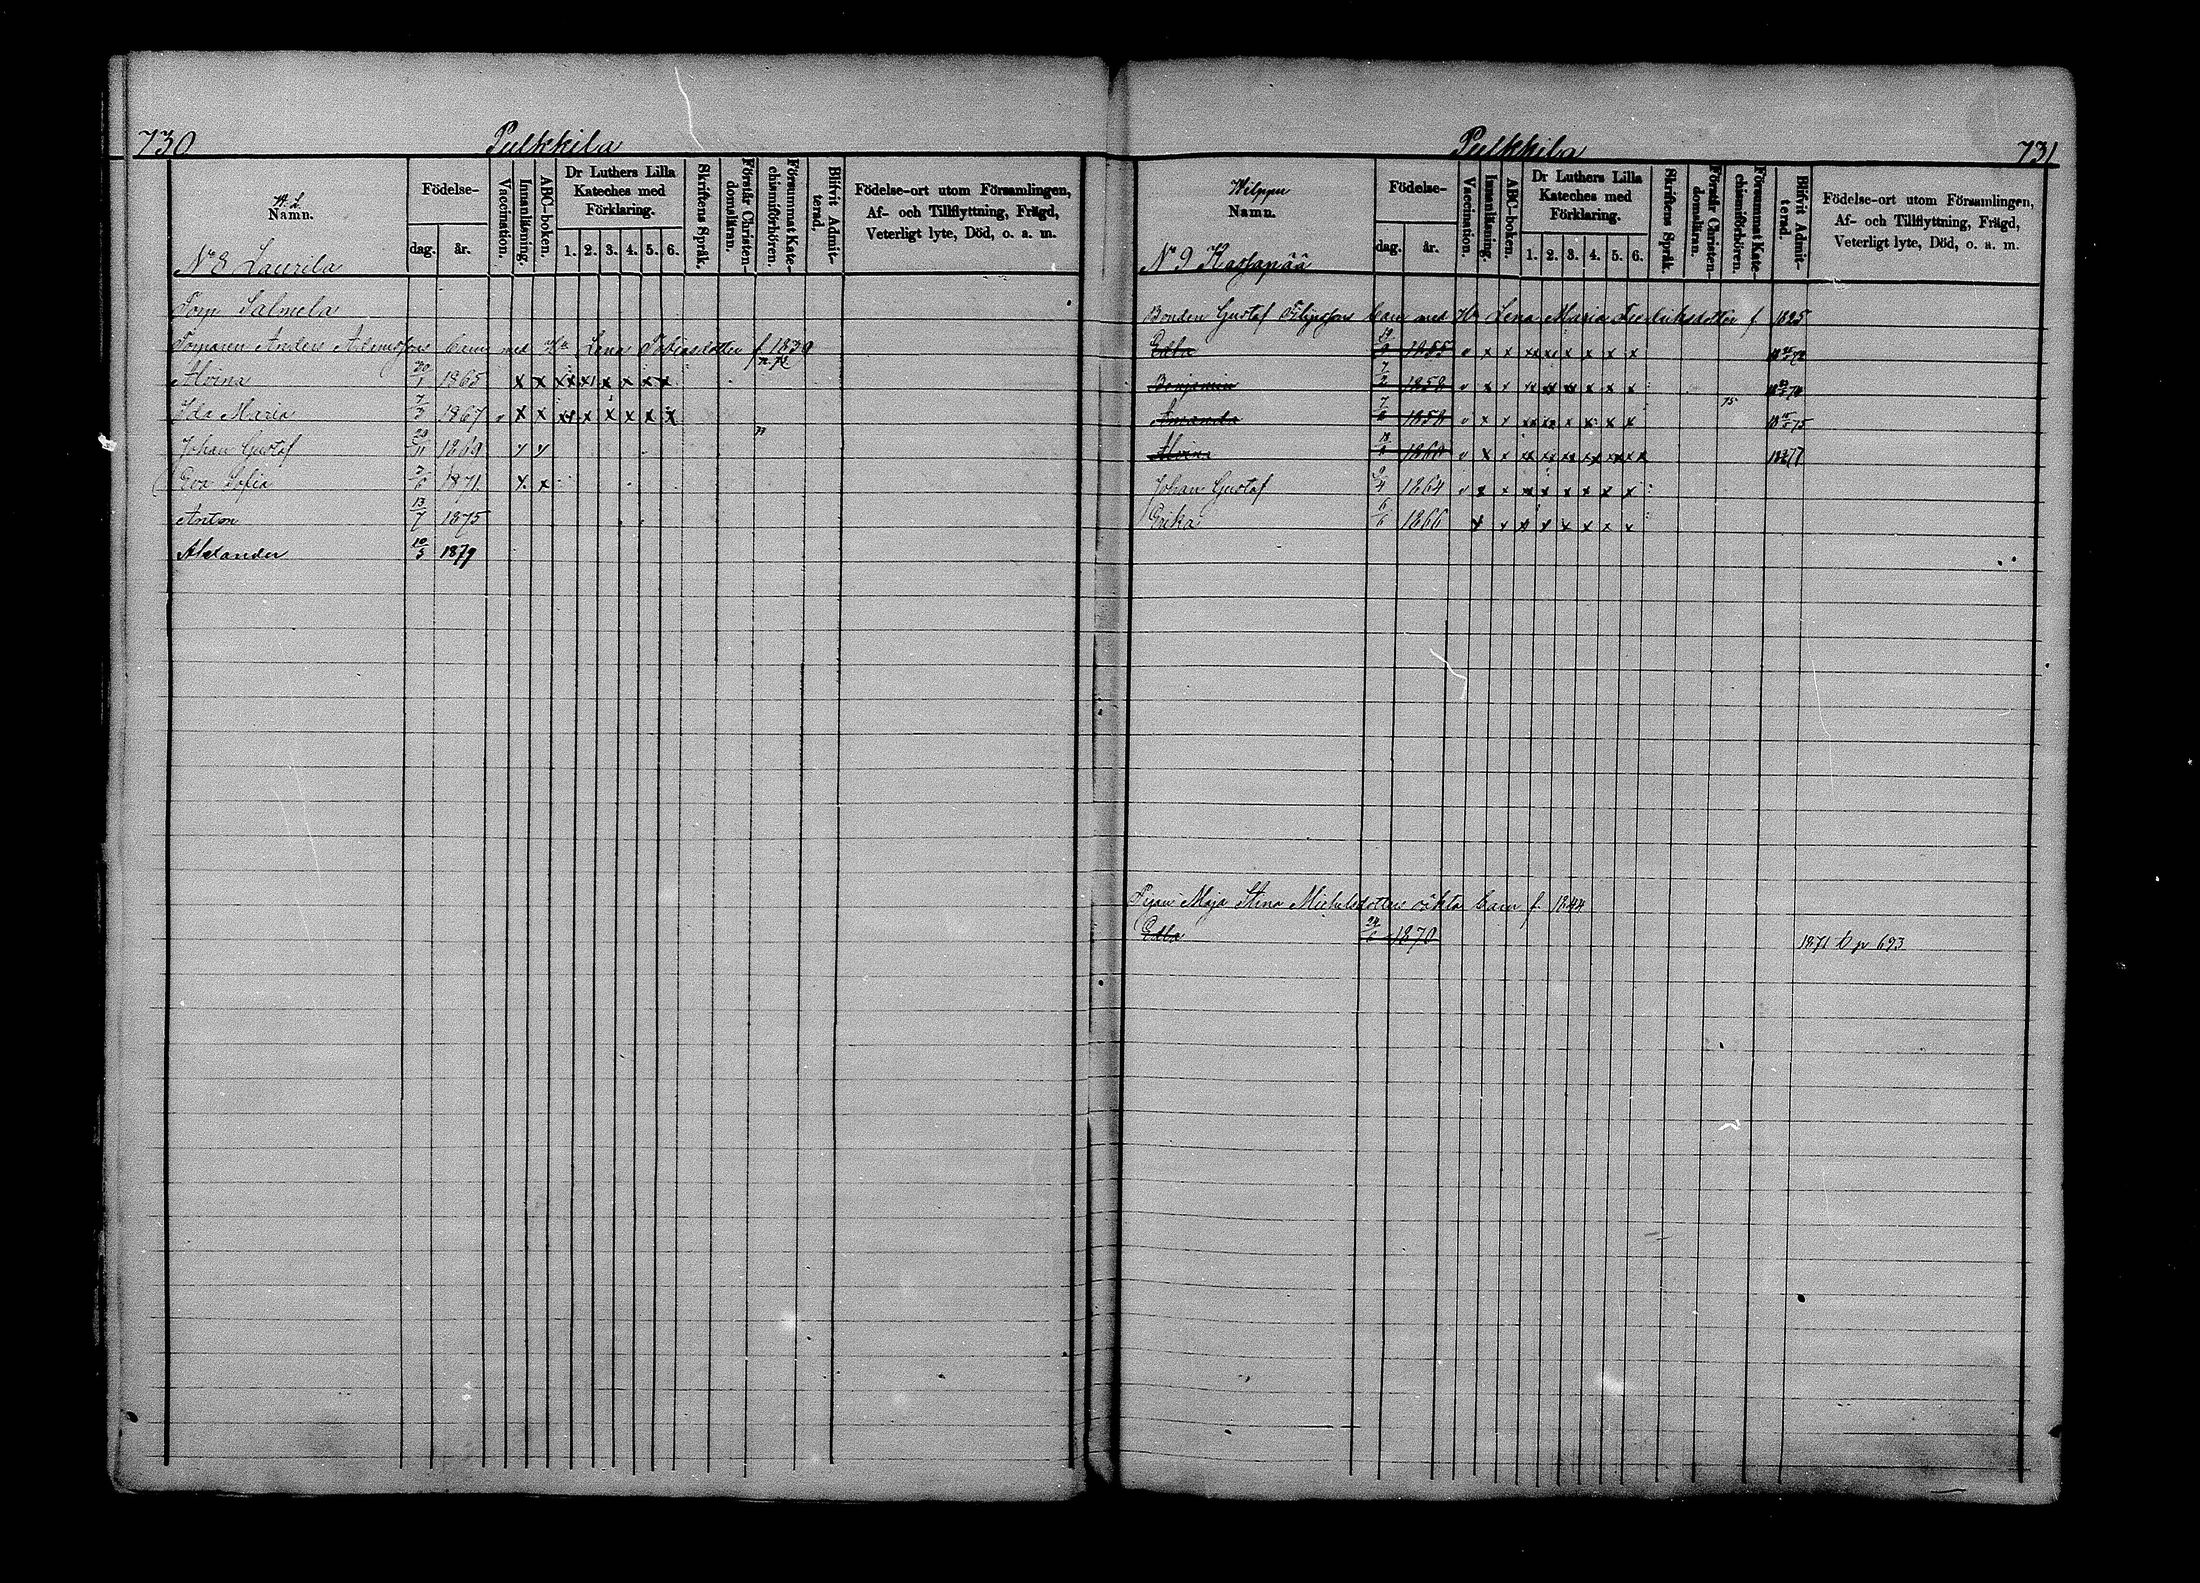 730 Pulkkila
Namn.
Födelse-
dag. år.
Vaccination.
Innanläsning.
ABC-boken.
Dr Luthers Lilla Kateches med Förklaring.
1. 2. 3. 4. 5. 6.
Skriftens Språk.
Förstår Christendomsläran.
Försummat Katechismiförhören.
Blifvit Admitterad.
Födelse-ort utom Församlingen,
Af- och Tillflyttning, Frägd,
Veterligt lyte, Död, o. a. m.
No 8 Laurila
Torp Salmela
Torparen Anders barn med Hu Lena Tobiasdotter f 1839
Alvina 20/1 1865 x x x x x x x x
Ida Maria 7/3 1867 v x x x x x x x x
Johan Gustaf 29/11 1869 x x
Eva Sofia 7/6 1871 x x
Anton 13/7 1875
Alexander 10/5 1879
Pulkkila 731
Wilppu
Namn.
Födelse-
dag. år.
Vaccination.
Innanläsning.
ABC-boken.
Dr Luthers Lilla Kateches med Förklaring.
1. 2. 3. 4. 5. 6.
Skriftens Språk.
Förstår Christendomsläran.
Försummat Katechismiförhören.
Blifvit Admitterad.
Födelse-ort utom Församlingen,
Af- och Tillflyttning, Frägd,
Veterligt lyte, Död, o. a. m.
No 9
Bonden Gustaf Filipssons barn med Hu Lena Maria Fredriksdotter f 1825
Edla 1855 v x x xx xx x x x x
Benjamin 7/2 1858 v x x xx xx xx x x x
Amanda 7/2 1858 v x x xx xx x x x x 75
Alvina 1860 v x x xx xx xx xx xx xx
Johan Gustaf 9/4 1864 v x x x x x x x x
Erika 6/6 1866 x x x x x x x x
Pigan Maja Stina Michelsdotters oäkta barn f. 1844
Edla 24/6 1870 1871 b p 693